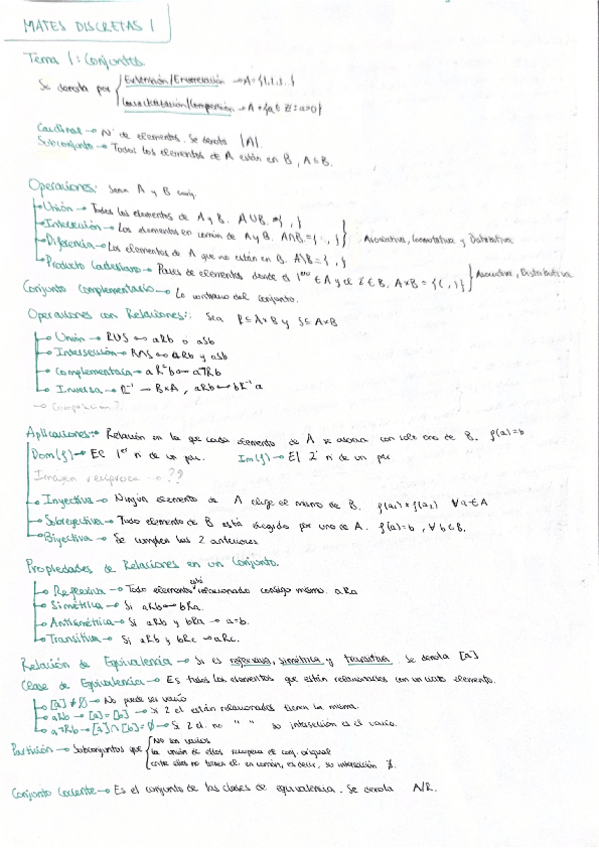 MATES DISCRETAS 1
Tema 1: Conjuntos.
Se denota por Extensión/Enumeración → A={1,2,3..}
Caracterización/Comprensión → A={a ∈ Z : a>0}
Cardinal → Nº de elementos. Se denota |A|.
Subconjunto → Todos los elementos de A están en B, A⊆B.
Operaciones: Sean A y B conj.
Unión → Todos los elementos de A y B. A∪B={ , }
Intersección → Los elementos en común de A y B. A∩B={ , }
Asociativa, Conmutativa y Distributiva
Diferencia → Los elementos de A que no están en B. A\B={ , }
Producto Cartesiano → Pares de elementos donde el 1ero ∈ A y el 2 ∈ B. A×B={( , )}
Asociativa, Distributiva
Conjunto Complementario → Lo contrario del conjunto.
Operaciones con Relaciones: Sea R⊆A×B y S⊆A×B
Unión → RUS ↔ aRb o aSb
Intersección → R∩S ↔ aRb y aSb
Complementaria →
Inversa → R⁻¹ → B×A, aRb ↔ bR⁻¹a
→ Composición?
Aplicaciones → Relación en la que cada elemento de A se asocia con solo uno de B. f(a)=b
Dom(f) → El 1er nº de un par. Im(f) → El 2º nº de un par
Imagen recíproca → ??
Inyectiva → Ningún elemento de A elige el mismo de B. f(a₁)≠f(a₂) ∀a∈A
Sobreyectiva → Todo elemento de B está escogido por uno de A. f(a)=b, ∀b∈B.
Biyectiva → Se cumplen las 2 anteriores
Propiedades de Relaciones en un Conjunto.
Reflexiva → Todo elemento está relacionado consigo mismo. aRa
Simétrica → Si aRb → bRa.
Antisimétrica → Si aRb y bRa → a=b.
Transitiva → Si aRb y bRc → aRc.
Relación de Equivalencia → Si es reflexiva, simétrica y transitiva. Se denota [a]
Clase de Equivalencia → Es todos los elementos que están relacionados con un cierto elemento.
[a]≠∅ → No puede ser vacío
aRb → [a]=[b] → Si 2 el. están relacionados tienen la misma.
→ [a]∩[b]=∅ → Si 2 el. no " " su intersección es el vacío.
Partición → Subconjuntos que No son vacíos
la unión de ellos recupera el conj. original
entre ellos no tienen el. en común, es decir, su intersección ∅.
Conjunto Cociente → Es el conjunto de las clases de equivalencia. Se denota A/R.